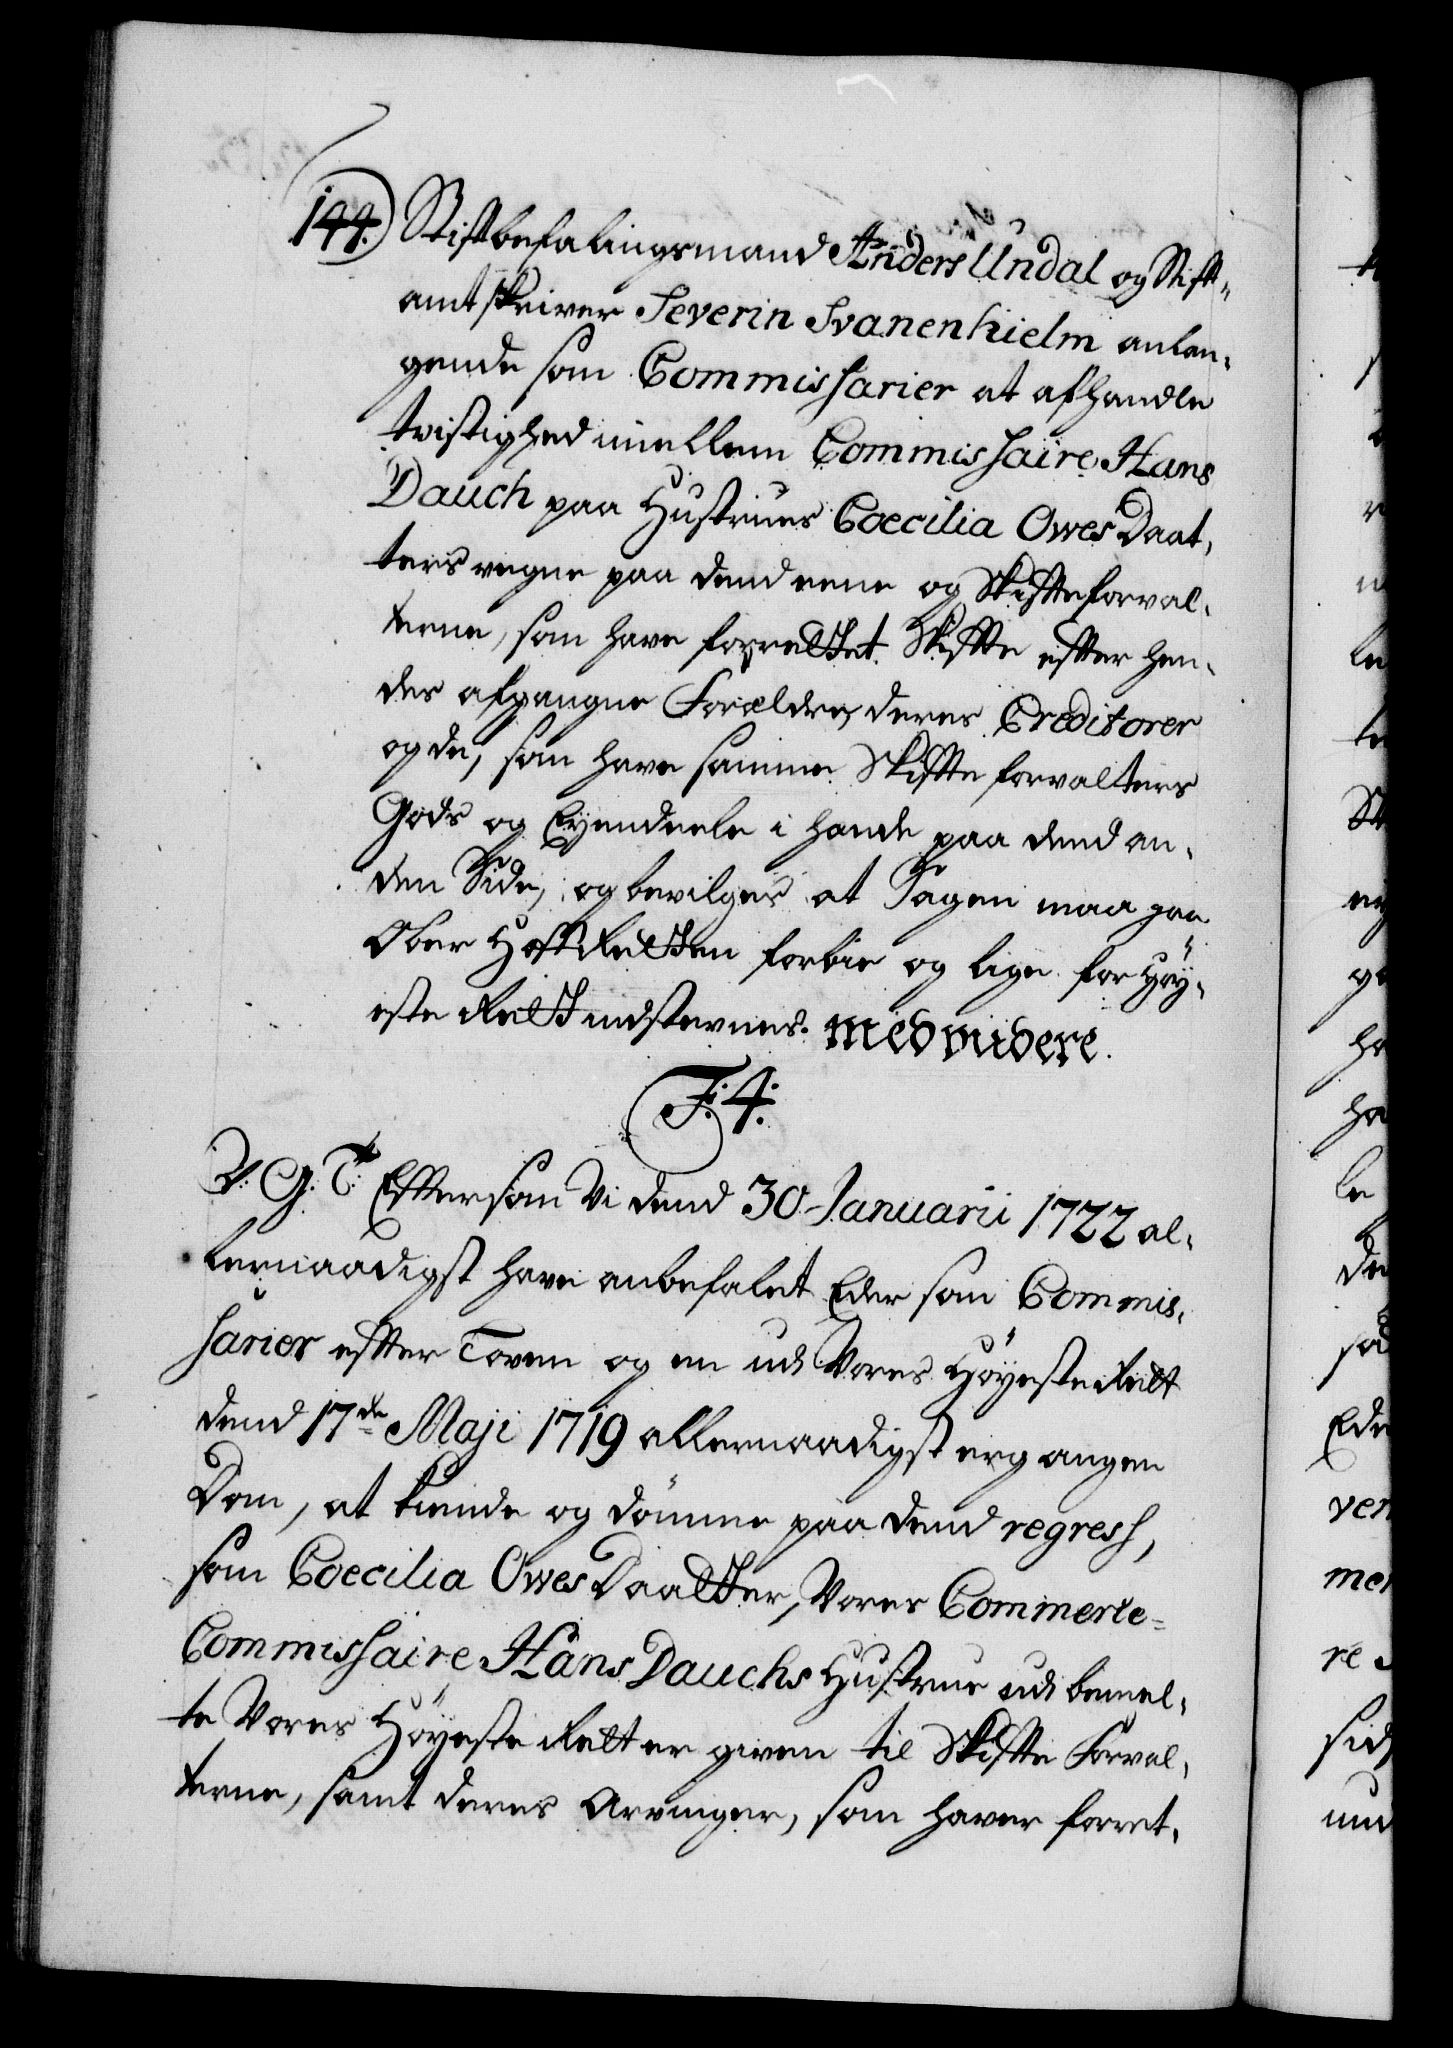 144. Stiftbefalingsmand Anders Undal og Stift-
amtskriver Severin Svanenhielm anlan-
gende som Commissarier at afhandle
tvistighed imellem Commissaire Hans
Dauch paa Hustrues Coecilia Owes Daat-
ters vegne paa dend eene og Skifteforval-
terne, som have forrettet Skifte efter hen-
des afgangne Forældre, deres Creditorer
og de, som have samme Skifte forvalters
Gods og Eyendeele i hænde paa dend an-
den Side, og bevilges at Sagen maa gaa
Ober Hoff Retten forbie og lige for Høy-
este Rett indstevnes. med videre.
F: 4:
V. G. T. Eftersom Vi dend 30 Januarii 1722 al-
lernaadigst have anbefalet Eder som Commis-
sarier efter Loven og en udi Vores Høyeste Rett
dend 17de Maji 1719 allernaadigst ergangen
Dom, at kiende og dømme paa dend regress,
som Coecilia Owes Daatter, Vores Commerce-
Commissaire Hans Dauchs Hustrue udi bemel-
te Vores Høyeste Rett er given til Skifte Forval-
terne, samt deres Arvinger, som haver forret-